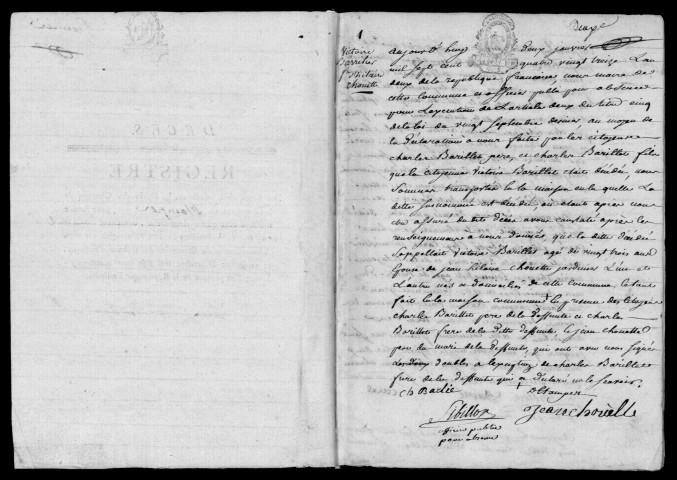 DECES
REGISTRE
1
Victoire
Barillet
Chouette
aujourd'huy deux janvier
mil sept cent quatre vingt treize L'an
deux de la republique francaise nous maire de
cette commune et officier public pour absence
pour L'execution de L'article deux du titre cinq
de la loi du vingt septembre dernier au moyen de
la Declaration a nous faite par les citoyens
charles Barillet pere, et charles Barillet fils
que la citoyenne victoire Barillet etait decedée, nous
sommes transportés à la maison en la quelle La
ditte susnommée est decedée, ou etants après nous
etre assuré du dit décès avons constaté après les
renseignements a nous donnés que la ditte décédée
s'appellait victoire Barillet agé de vingt trois ans
Epouse de jean hilaire Chouette jardinier L'un et
L'autre nés et domiciliés de cette commune, le tout
fait à la maison commune en presence des citoyens
charles Barillet pere de la deffunte et charles
Barillet frere de la ditte deffunte, et jean chouette
pere du mari de la deffunte, qui ont avec nous signés
Les doubles a l'exception de charles Barillet
frere de la deffunte qui a declaré ne le savoir.
ch Badié
jean chouette
officier public
pour absence